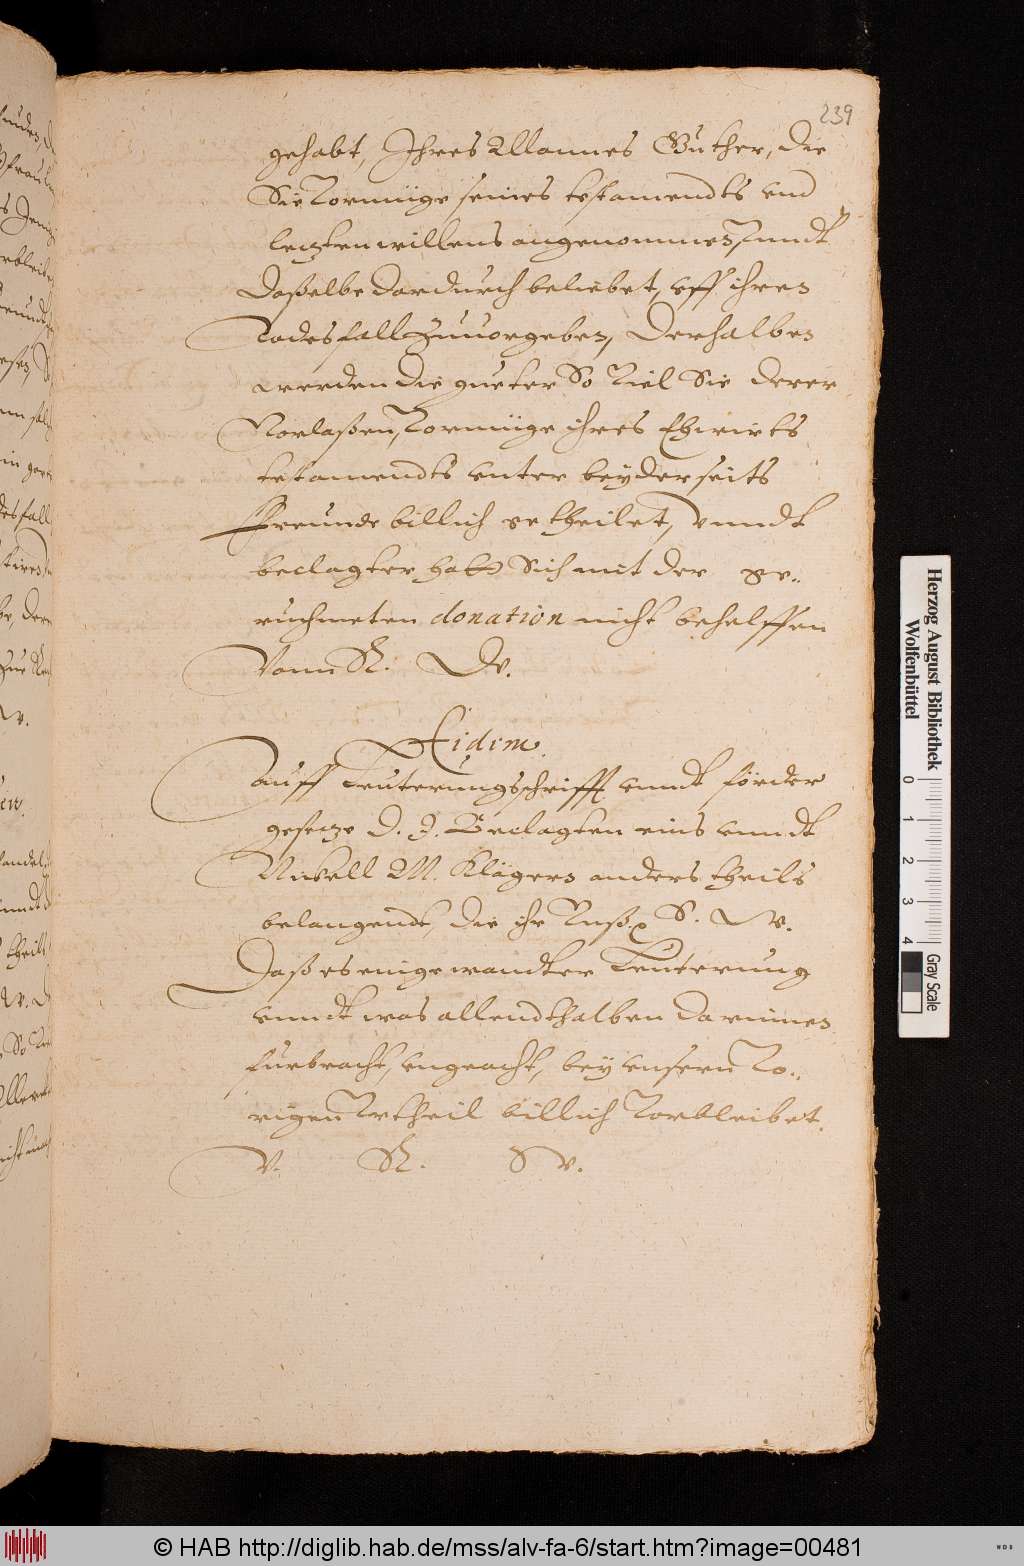 239
gehabt, Ihres Mannes Güther, die
Sie Vormüge seines testamendts vnd
letzten willens angenommen, vnndt
daßelbe dardurch beliebet, vff ihren
Todesfall zuuorgeben, Derhalben
werden die gueter So viel Sie derer
Vorlaßen, Vormüge ihres Ehwirts
testamendts vnter beyderseits
freunde billich getheilet, vnndt
beclagter hatt Sich mit der ge..
ruhmeten donation nicht behelffen
Vonn R. W.
Eidem.
auff Leuterungsschrifft vnndt förder
gesetze D. J. Beclagten eins vnndt
Nickell M. Klägern anders theils
belangendt, die ihr Vnß S. W.
Daß es eingewandter Leuterung
vnndt was allendthalben darinnen
furbracht, vngeacht, bey vnserm vo..
rigen Vrtheil billich Vorbleibet.
V. R. W.
Herzog August Bibliothek
Wolfenbüttel
0 1 2 3 4
Gray Scale
© HAB http://diglib.hab.de/mss/alv-fa-6/start.htm?image=00481